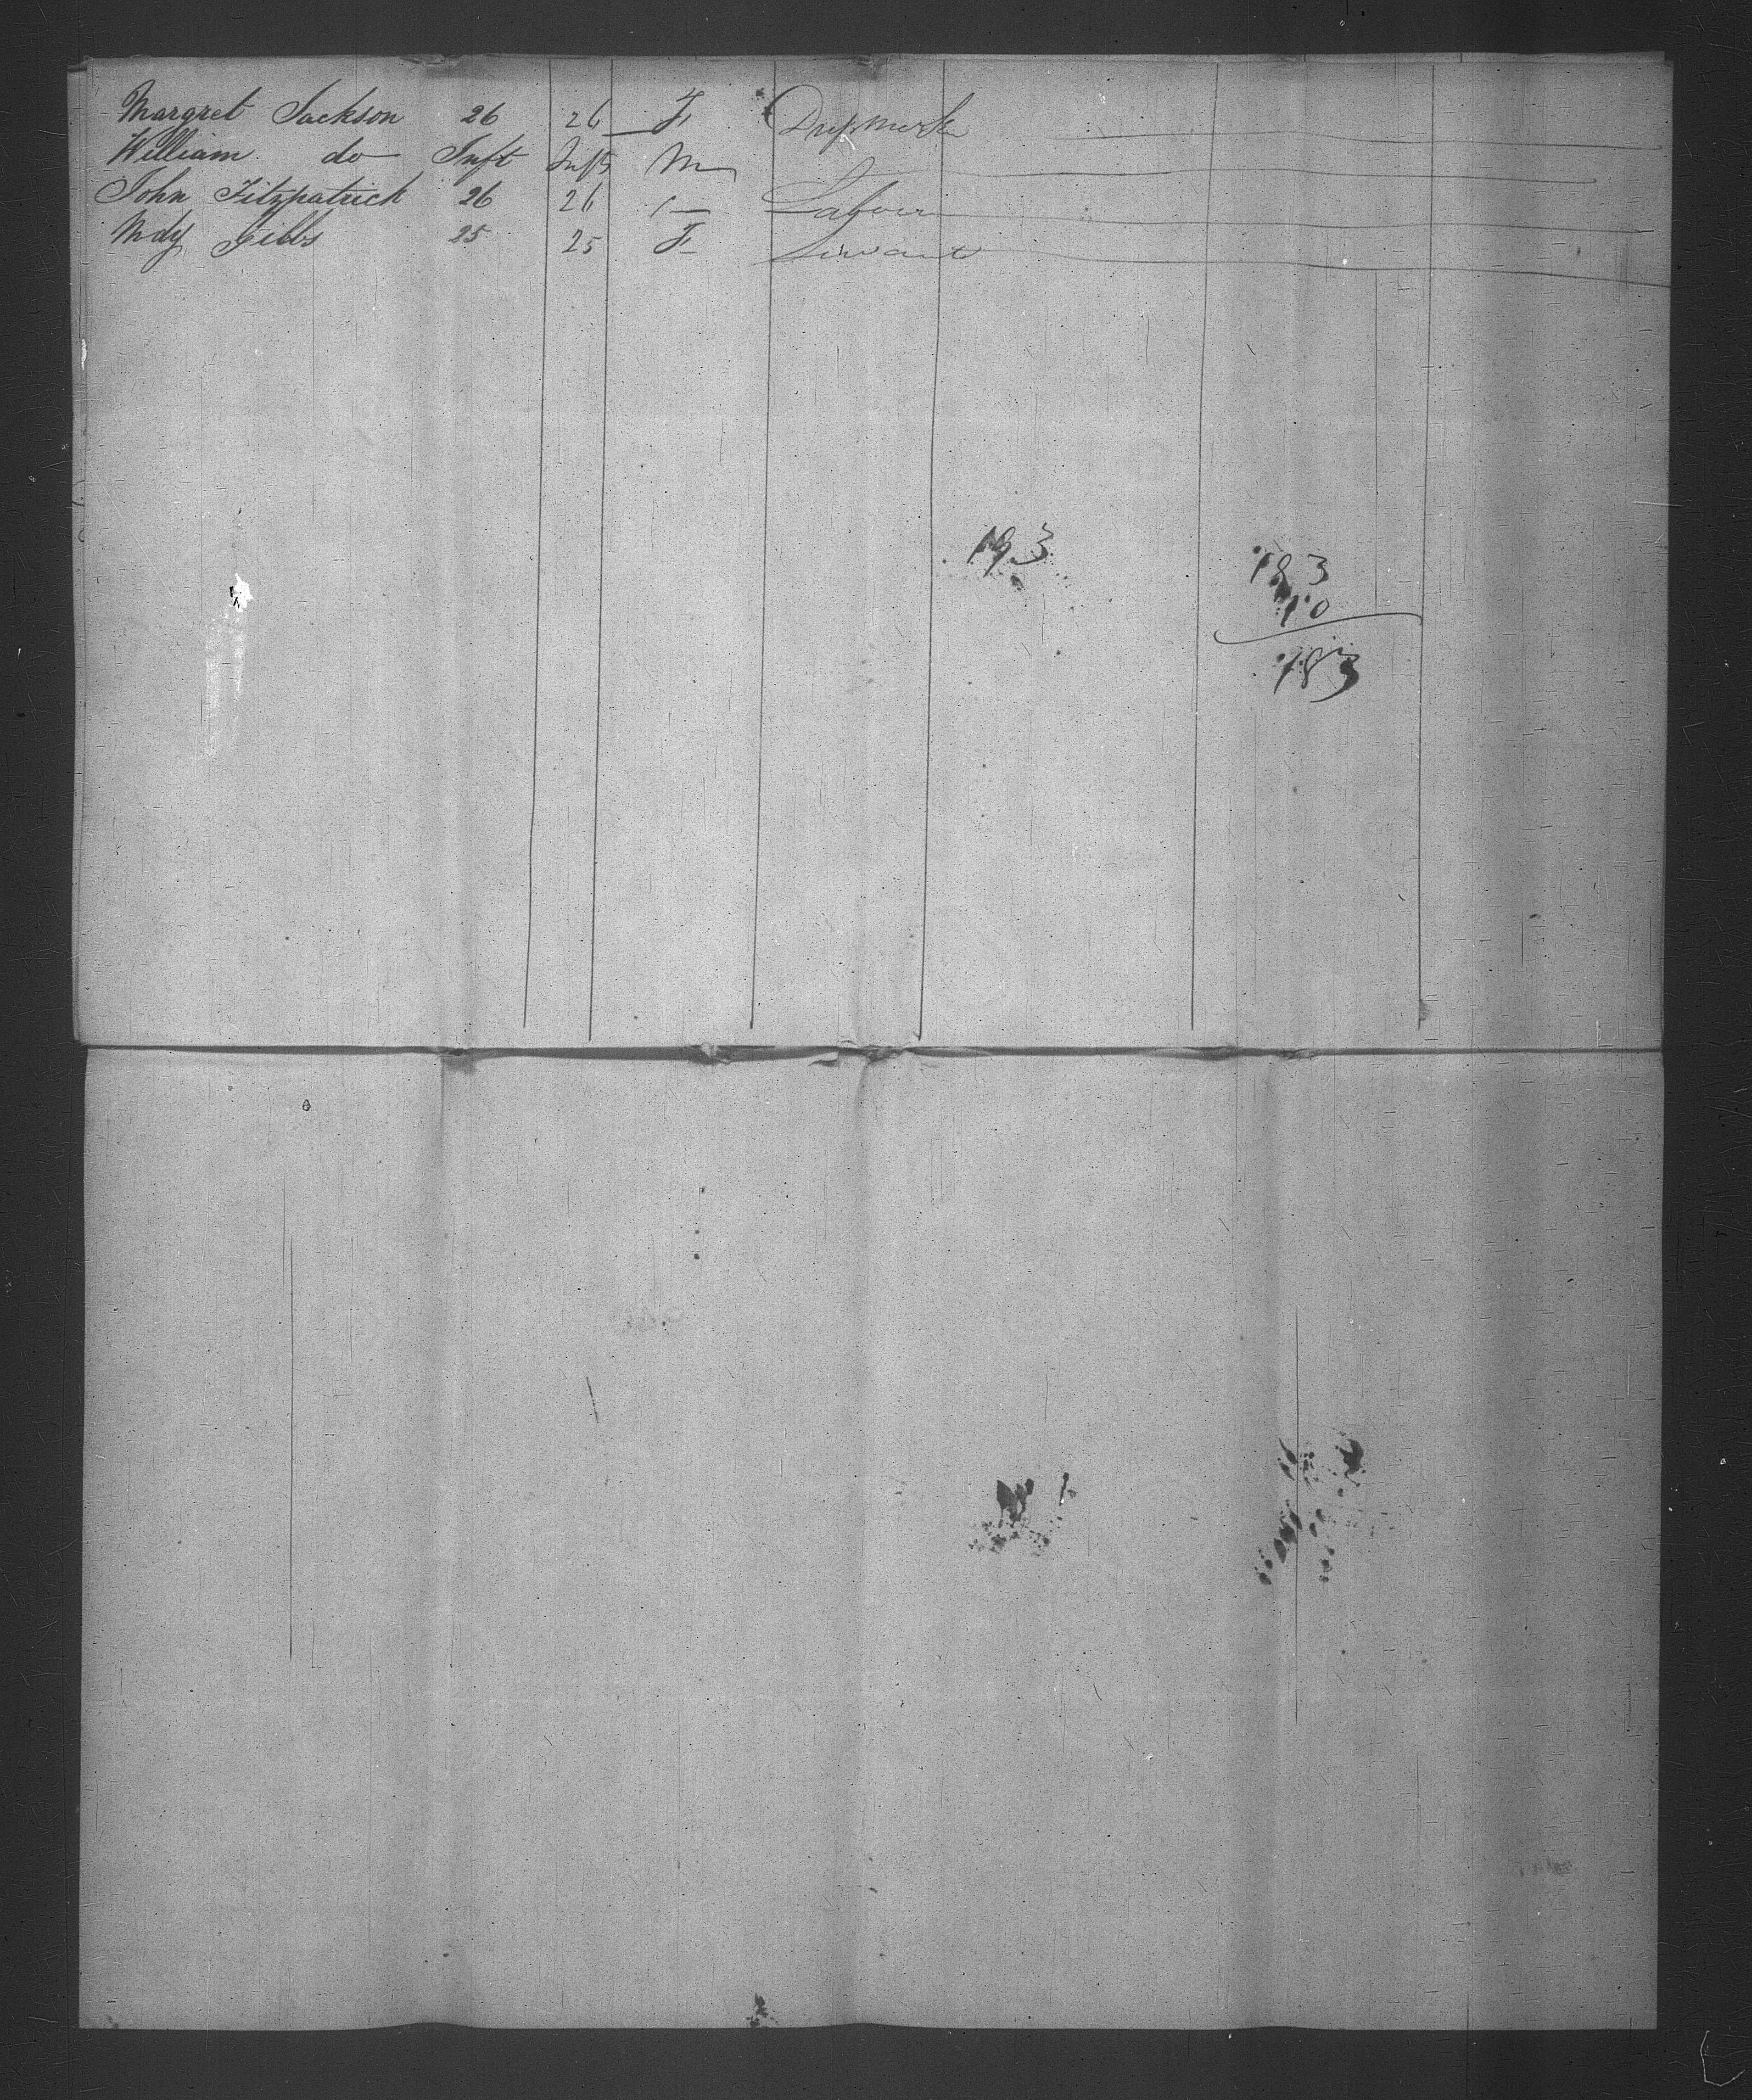 Margret Jackson 26 26 F Dressmerker
William do Inft Inft M
John Fitzpatrick 26 26 Labour
Mdy Gibbs 25 25 F Servant
193
193
10
183